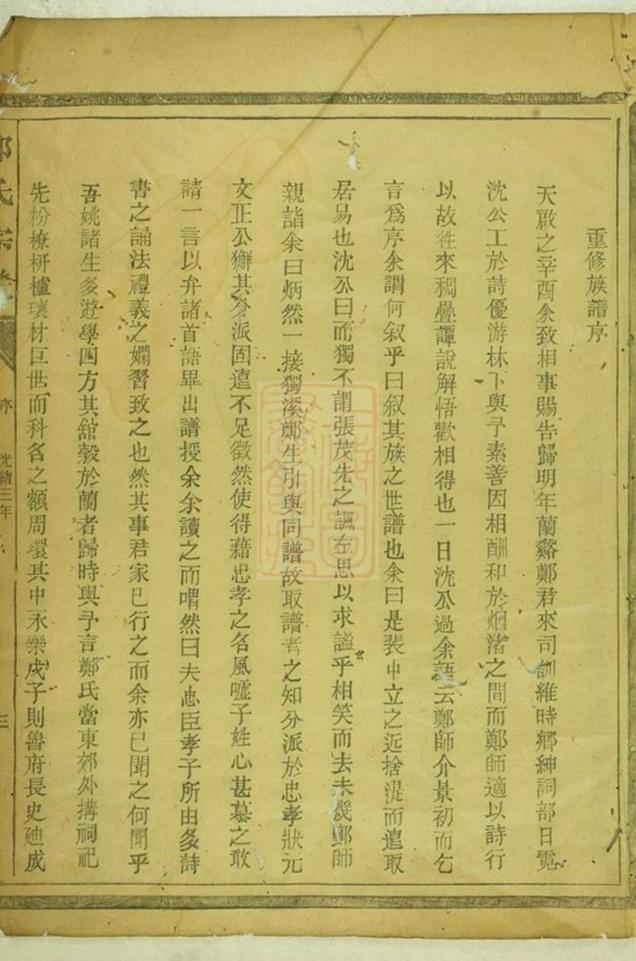 重修族譜序
天啟之辛酉余致相事賜告歸明年蘭谿鄭君來司訓維時鄉紳詞部日霓
沈公工於詩優游林下與予素善因相酬和於烟渚之間而鄭師適以詩行
以故往來稠疊譚說解悟歡相得也一日沈公過余語云鄭師介景初而乞
言爲序余謂何叙乎曰叙其族之世譜也余曰是裴中立之近捨湜而遠取
居易也沈公曰而獨不謂張茂先之諷左思以求謐乎相笑而去未幾鄭師
親詣余曰炳然一接獨溪鄭生引與同譜故取譜考之知分派於忠孝狀元
文正公獬其分派固遠不足徵然使得藉忠孝之名風噓子姓心甚慕之敢
請一言以弁諸首語畢出譜授余余讀之而喟然曰夫忠臣孝子所由多詩
書之誦法禮義之嫻習致之也然其事君家已行之而余亦已聞之何聞乎
吾姚諸生多遊學四方其舘穀於蘭者歸時與予言鄭氏當東郊外搆祠祀
先枌橑枅櫨瓌材巨世而科名之額周環其中永樂戊子則魯府長史廸成
氏宗
序
光緒三年
三